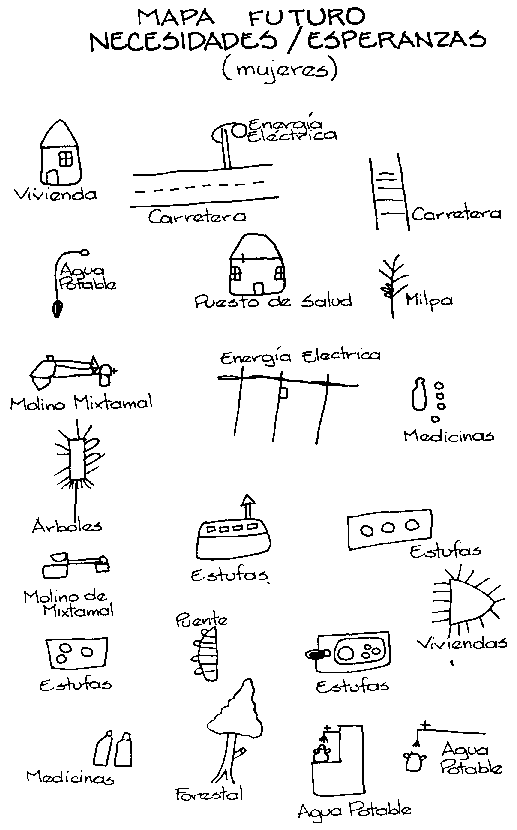 MAPA FUTURO
NECESIDADES / ESPERANZAS
(mujeres)
Energía
Eléctrica
Vivienda
Carretera
Carretera
Agua
Potable
Puesto de Salud
Milpa
Energía Electrica
Molino Mixtamal
Medicinas
Arboles
Estufas
Estufas
Molino de
Mixtamal
Puente
Viviendas
Estufas
Estufas
Medicinas
Forestal
Agua Potable
Agua
Potable